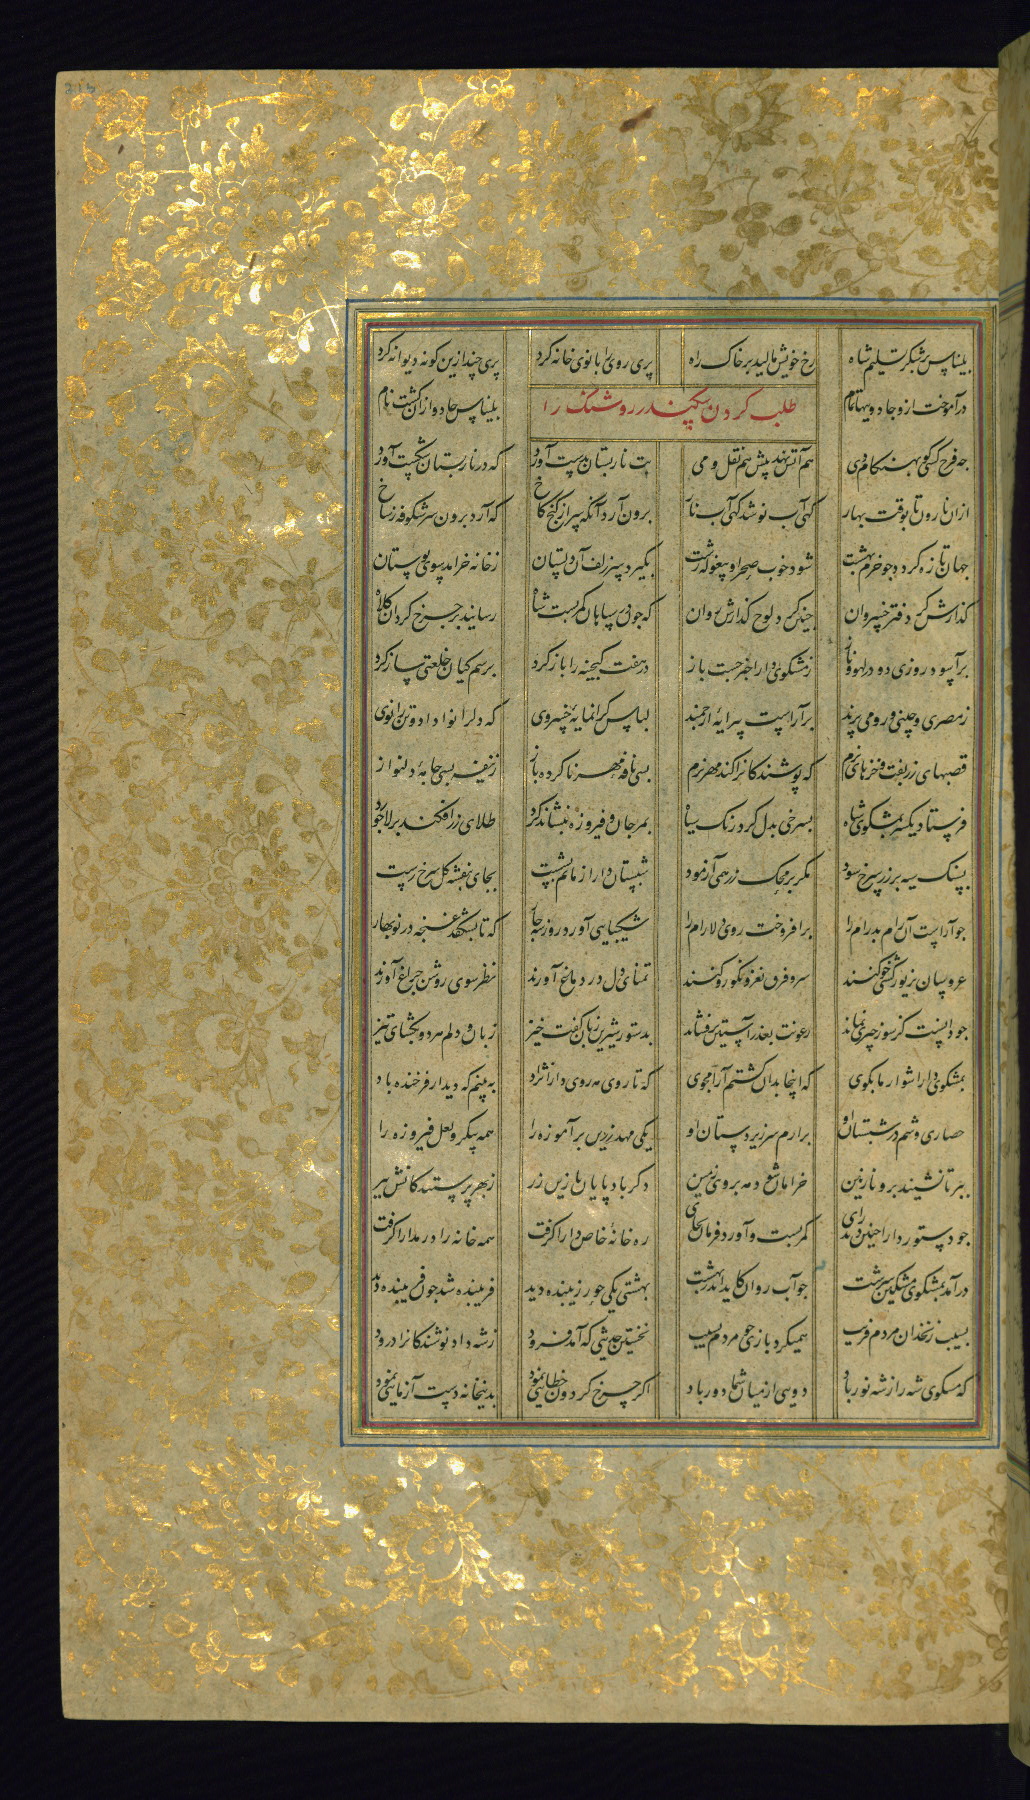 بلیناس بر شکر تسلیم شاه
رخ خویش مالید بر خاک راه
پری روی را بانوی خانه کرد
پری چند ازین کونه دیوانه کرد
درآموخت ازو جادویها تمام
بلیناس جادو ازان کشت نام
طلب کردن سکندر روشنک را
چه فرخ کسی کو بهنکام دی
هم آتش نهد پیش هم نقل و می
بت نارپستان بدست آورد
که در نارپستان شکست آورد
ازان نارون تا بوقت بهار
کهی آب نوشد کهی آب نار
برون آرد آنکه سر از کنج کاخ
که آرد برون سر شکوفه ز شاخ
جهان تازه کردد چو خرم بهشت
شود خوب صحرا و بیغوله زشت
بکیرد سر زلف آن دلستان
ز خانه خرامد سوی بوستان
کذارش کر دفتر خسروان
چنین کرد لوح کذارش روان
که چون در سپاهان کمر بست شاه
رسانید بر چرخ کردان کلاه
برآسود روزی دو در لهو و ناز
ز مشکوی دارا خبر جست باز
در هفت کنجینه را باز کرد
برسم کیان خلعتی ساز کرد
ز مصری و چینی و رومی پرند
برآراست پیرایهٔ ارجمند
لباس کرانمایهٔ خسروی
که دل را نوا داد و تن را نوی
قصبهای زربفت و خزهای نرم
که پوشند کانرا کند مهر نرم
بسی نافه مهر ناکرده باز
ز نیفه بسی جامهٔ دلنواز
فرستاد یکسر بمشکوی شاه
بسرخی بدل کرد رنک سیاه
بمرجان و فیروزه بنشاند کرد
طلای زر افکند بر لاجورد
بسنک سیه بر زر سرخ سود
مکر بر محک زر همی آزمود
شبستان دارا ز ماتم بشست
بجای بنفشه کل سرخ رست
چو آراست آن رام بدرام را
برافروخت روی دلارام را
شکیبایی آورد روزی چهار
که تا بشکفد غنچه در نوبهار
عروسان بزیور کشی خو کنند
سر و فرق نغز و نکو رو کنند
تمنای دل در دماغ آورند
نظر سوی روشن چراغ آورند
چو دانست کز سوز چیزی نماند
رعونت بعذر آستین برفشاند
بدستور شیرین زبان کفت خیز
زبان و دلم هر دو بکشای تیز
بمشکوی دارا شو از ما بکوی
که اینجا بدان کشتم آرامجوی
که تا روی مه روی دارانژاد
ببینم که دیدار فرخنده باد
حصاری وشم در شبستان او
برارم سر زیردستان او
یکی مهد زرین برآموزه را
همه پیکر و لعل فیروزه را
ببر تا نشیند برو نازنین
خرامان شود مه بروی زمین
دکر بادپایان با زین زر
ز بهر پرستند کانش ببر
چو دستور دارا چنین دید رای
کمر بست و آورد فرمان بجای
ره خانهٔ خاص دارا کرفت
همه خانه را در مدارا کرفت
درآمد بمشکوی مشکین سرشت
چو آب روان کاید اندر بهشت
بهشتی یکی حور زیبنده دید
فریبنده شد چون فریبنده دید
بسیب زنخدان مردم فریب
همیکرد بازی چو مردم بسیب
نخستین حدیثی که آمد فرود
ز شه داد نوشندکانرا درود
که مشکوی شه را ز شه نور باد
دویی از میان شما دور باد
اکر چرخ کردون خطایی نمود
بدین خانه دست آزمایی نمود